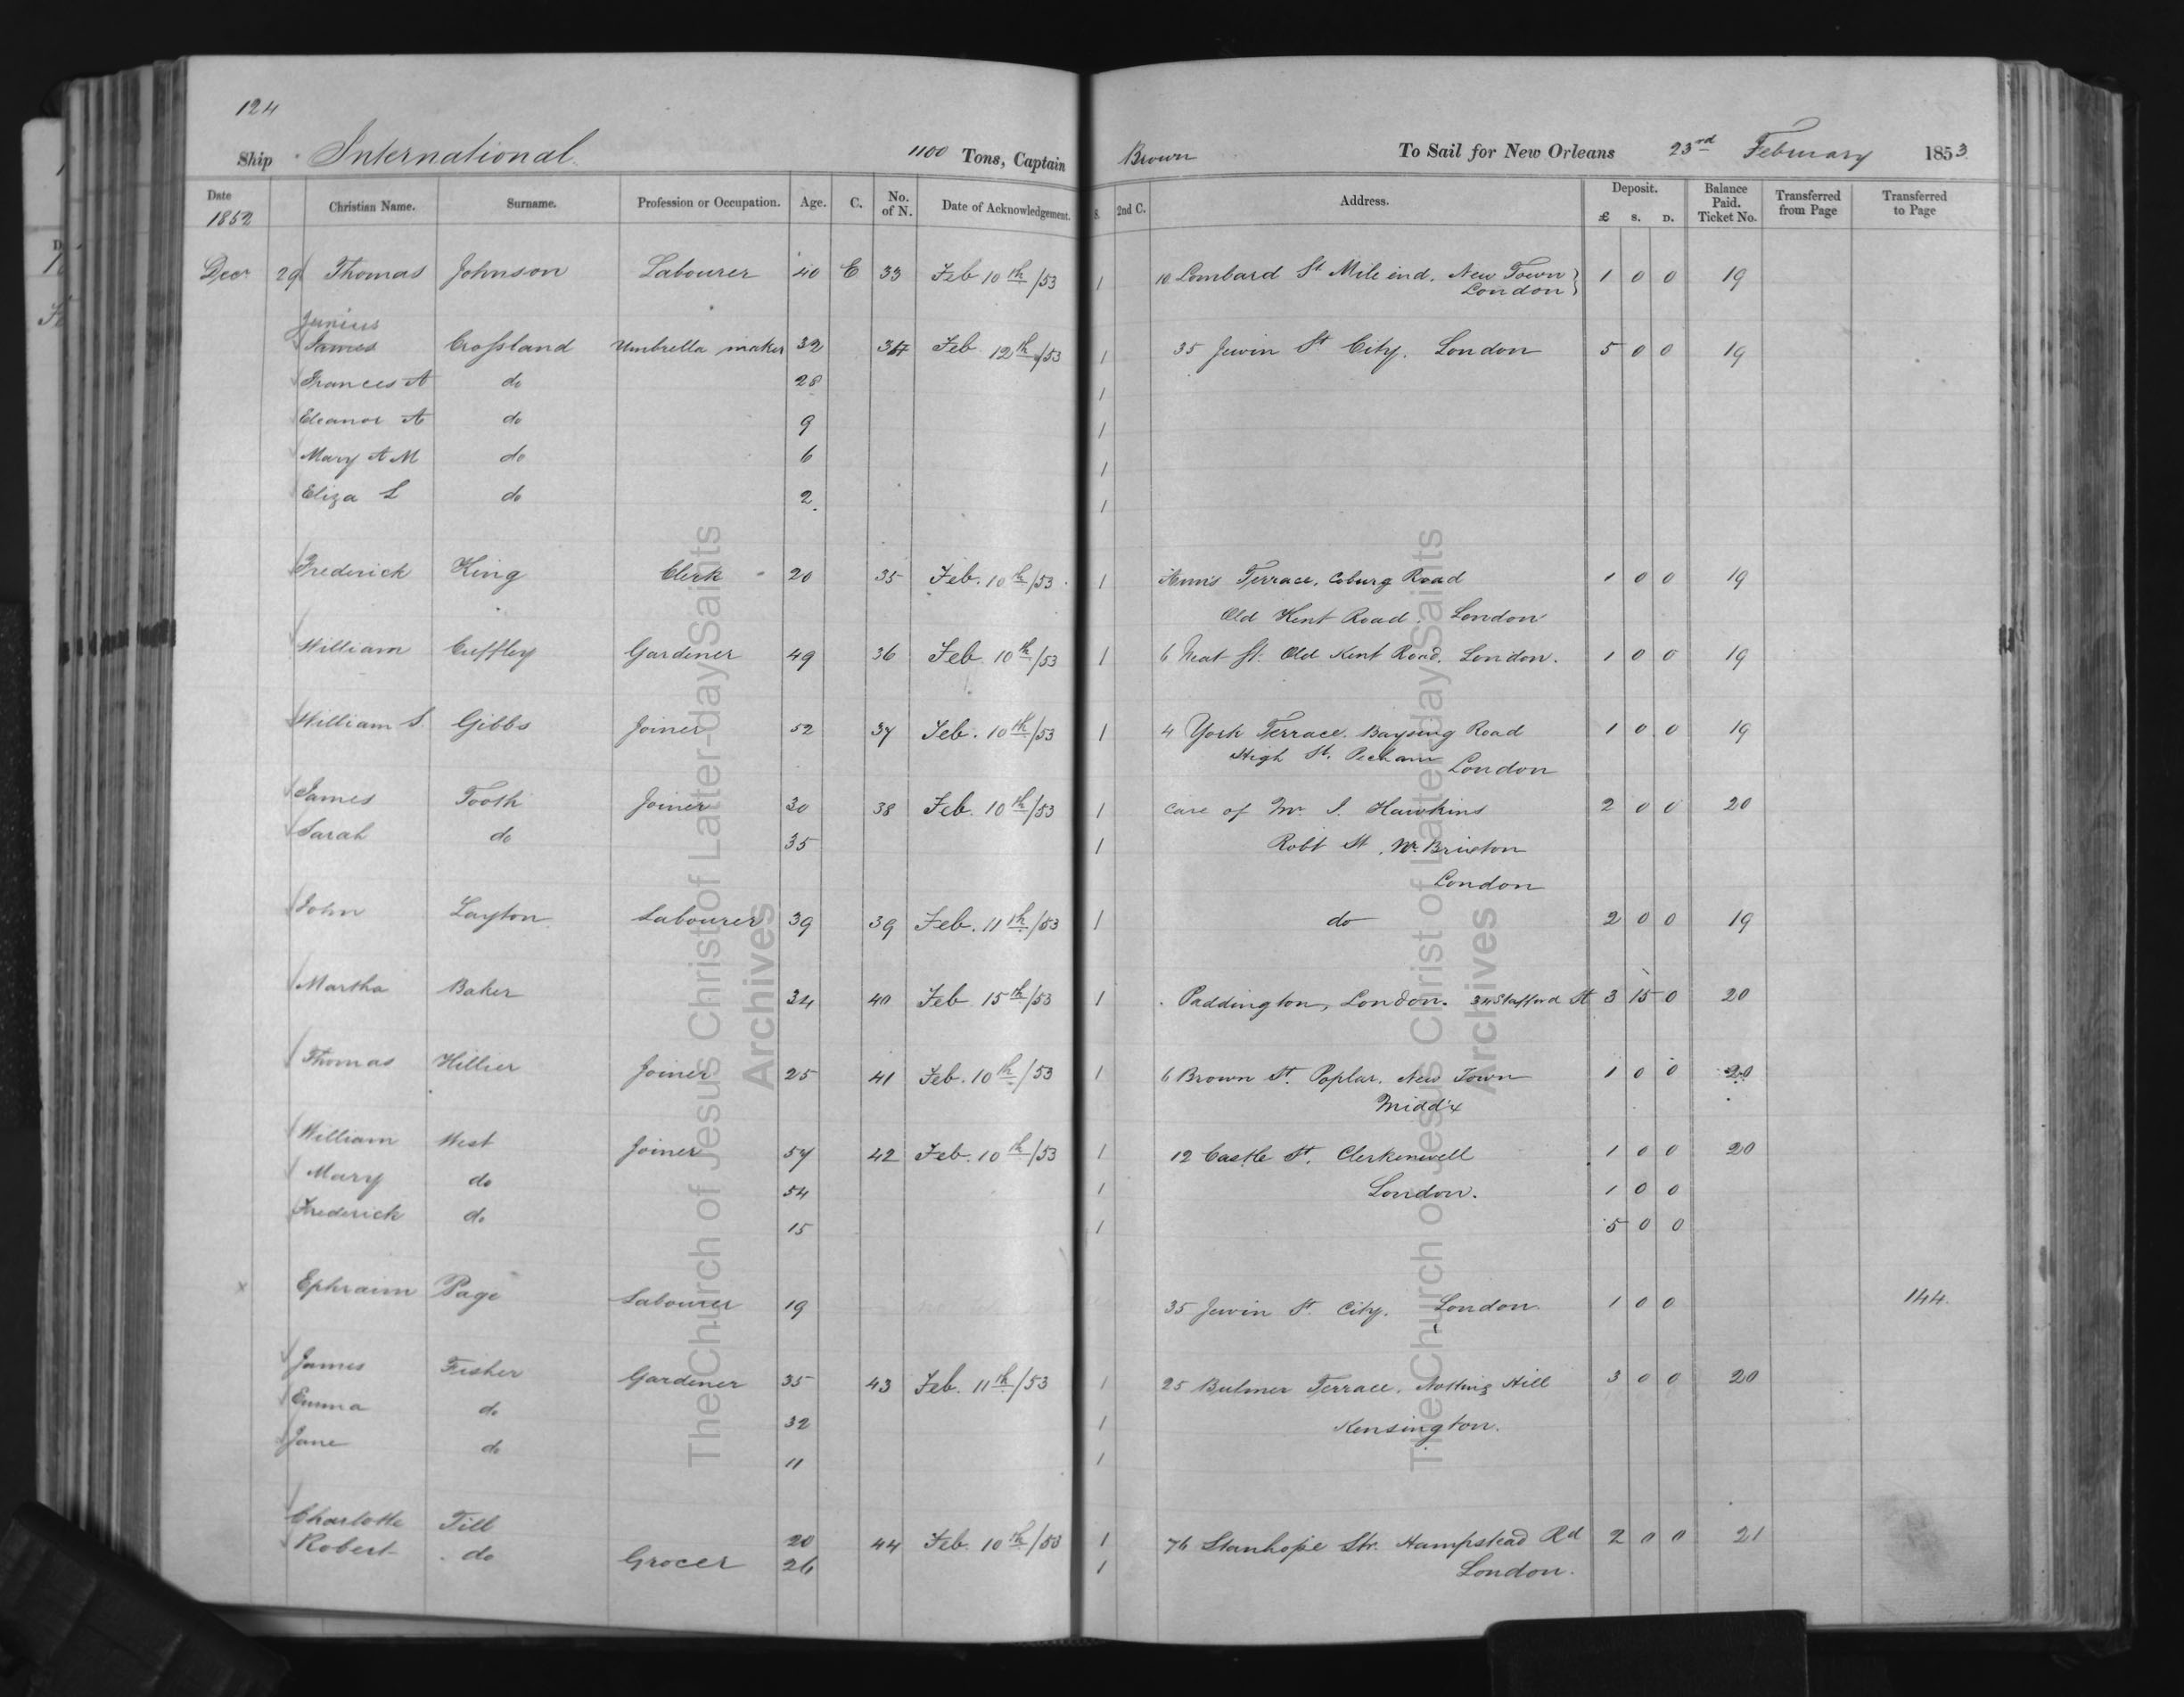 124
Ship International 1100 Tons, Captain Brown To Sail for New Orleans 23rd February 1853
Date Christian Name. Surname. Profession or Occupation. Age. C. No. of N. Date of Acknowledgement. S. 2nd C. Address. Deposit. £ s. D. Balance Paid. Ticket No. Transferred from Page Transferred to Page
1852
Decr 29 Thomas Johnson Labourer 40 E 33 Feb 10th/53 1 10 Lombard St Mile end, New Town 1 0 0 19
London
Junius
James Crossland Umbrella maker 32 34 Feb 12th/53 1 35 Jewin St City. London 5 0 0 19
Frances A do 28 1
Eleanor A do 9 1
Mary A M do 6 1
Eliza L do 2 1
Frederick King Clerk 20 35 Feb. 10th/53 1 Terrace, Coburg Road 1 0 0 19
Old Kent Road. London
William Cuffley Gardener 49 36 Feb 10th/53 1 6 Neat St. Old Kent Road. London. 1 0 0 19
William S. Gibbs Joiner 52 37 Feb. 10th/53 1 4 York Terrace. Road 1 0 0 19
High St. Pecham London
James Tooth Joiner 30 38 Feb. 10th/53 1 Care of Mr. J. Hawkins 2 0 0 20
Sarah do 35 1 Robt St. Nr. Brixton
London
John Layton Labourer 39 39 Feb. 11th/53 1 do 2 0 0 19
Martha Baker 34 40 Feb 15th/53 1 Paddington, London. 34 Stafford St 3 15 0 20
Thomas Hillier Joiner 25 41 Feb. 10th/53 1 6 Brown St. Poplar. New Town 1 0 0 20
Midd'x
William West Joiner 57 42 Feb. 10th/53 1 12 Castle St. Clerkenwell 1 0 0 20
Mary do 54 1 London. 1 0 0
Frederick do 15 1 5 0 0
x Ephraim Page Labourer 19 35 Jewin St. City. London 1 0 0 144
James Fisher Gardener 35 43 Feb. 11th/53 1 25 Bulmer Terrace, Notting Hill 3 0 0 20
Emma do 32 1 Kensington.
Jane do 11 1
Charlotte Till 20 44 Feb. 10th/53 1 76 Stanhope Str. Hampstead Rd 2 0 0 21
Robert do Grocer 26 1 London.
The Church of Jesus Christ of Latter-day Saints
Archives
The Church of Jesus Christ of Latter-day Saints
Archives